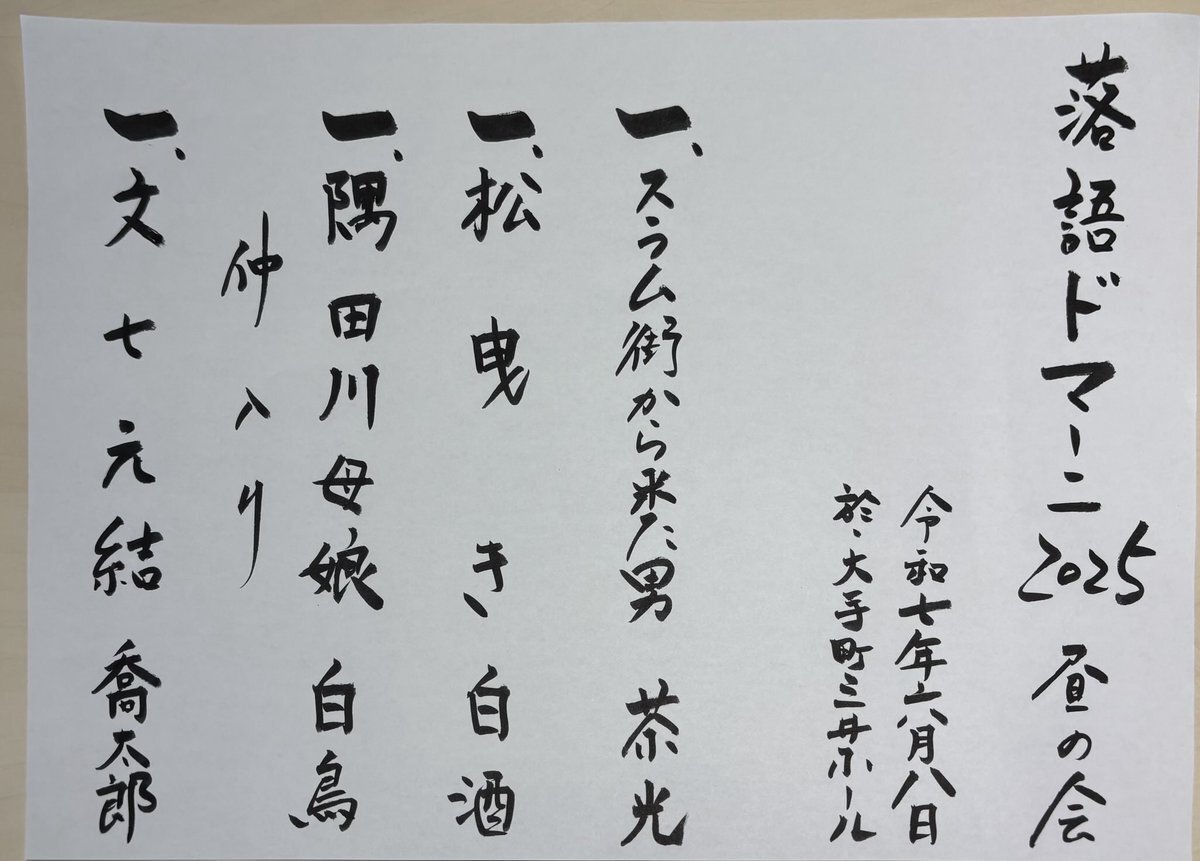 落語ドマーニ2025 昼の会
令和七年六月八日
於、大手町三井ホール
一、スラム街から来た男 茶光
一、松曳き 白酒
一、隅田川母娘 白鳥
仲入り
一、文七元結 喬太郎